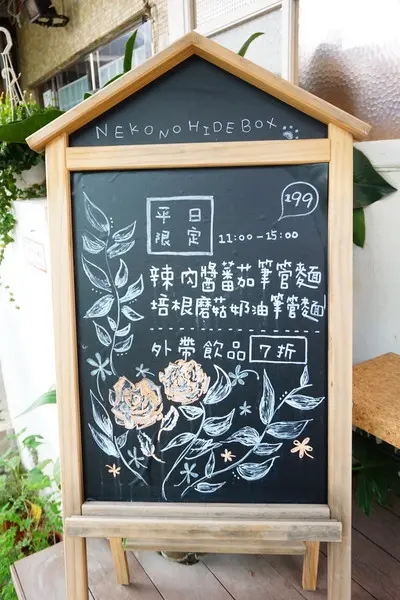 NEKONOHIDEBOX
平日限定 11:00-15:00 299
辣肉醬蕃茄筆管麵
培根蘑菇奶油筆管麵
外帶飲品 7折